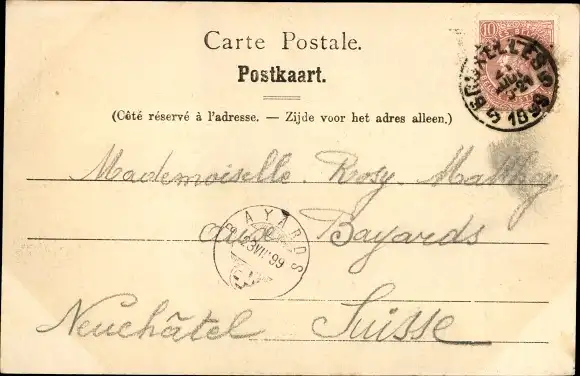 Carte Postale.
Postkaart.
(Côté réservé à l'adresse. — Zijde voor het adres alleen.)
10
BRUXELLES 5
1899
Mademoiselle Rosy Matthey
aux Bayards
BAYARDS
23 VII 99
Neuchâtel Suisse